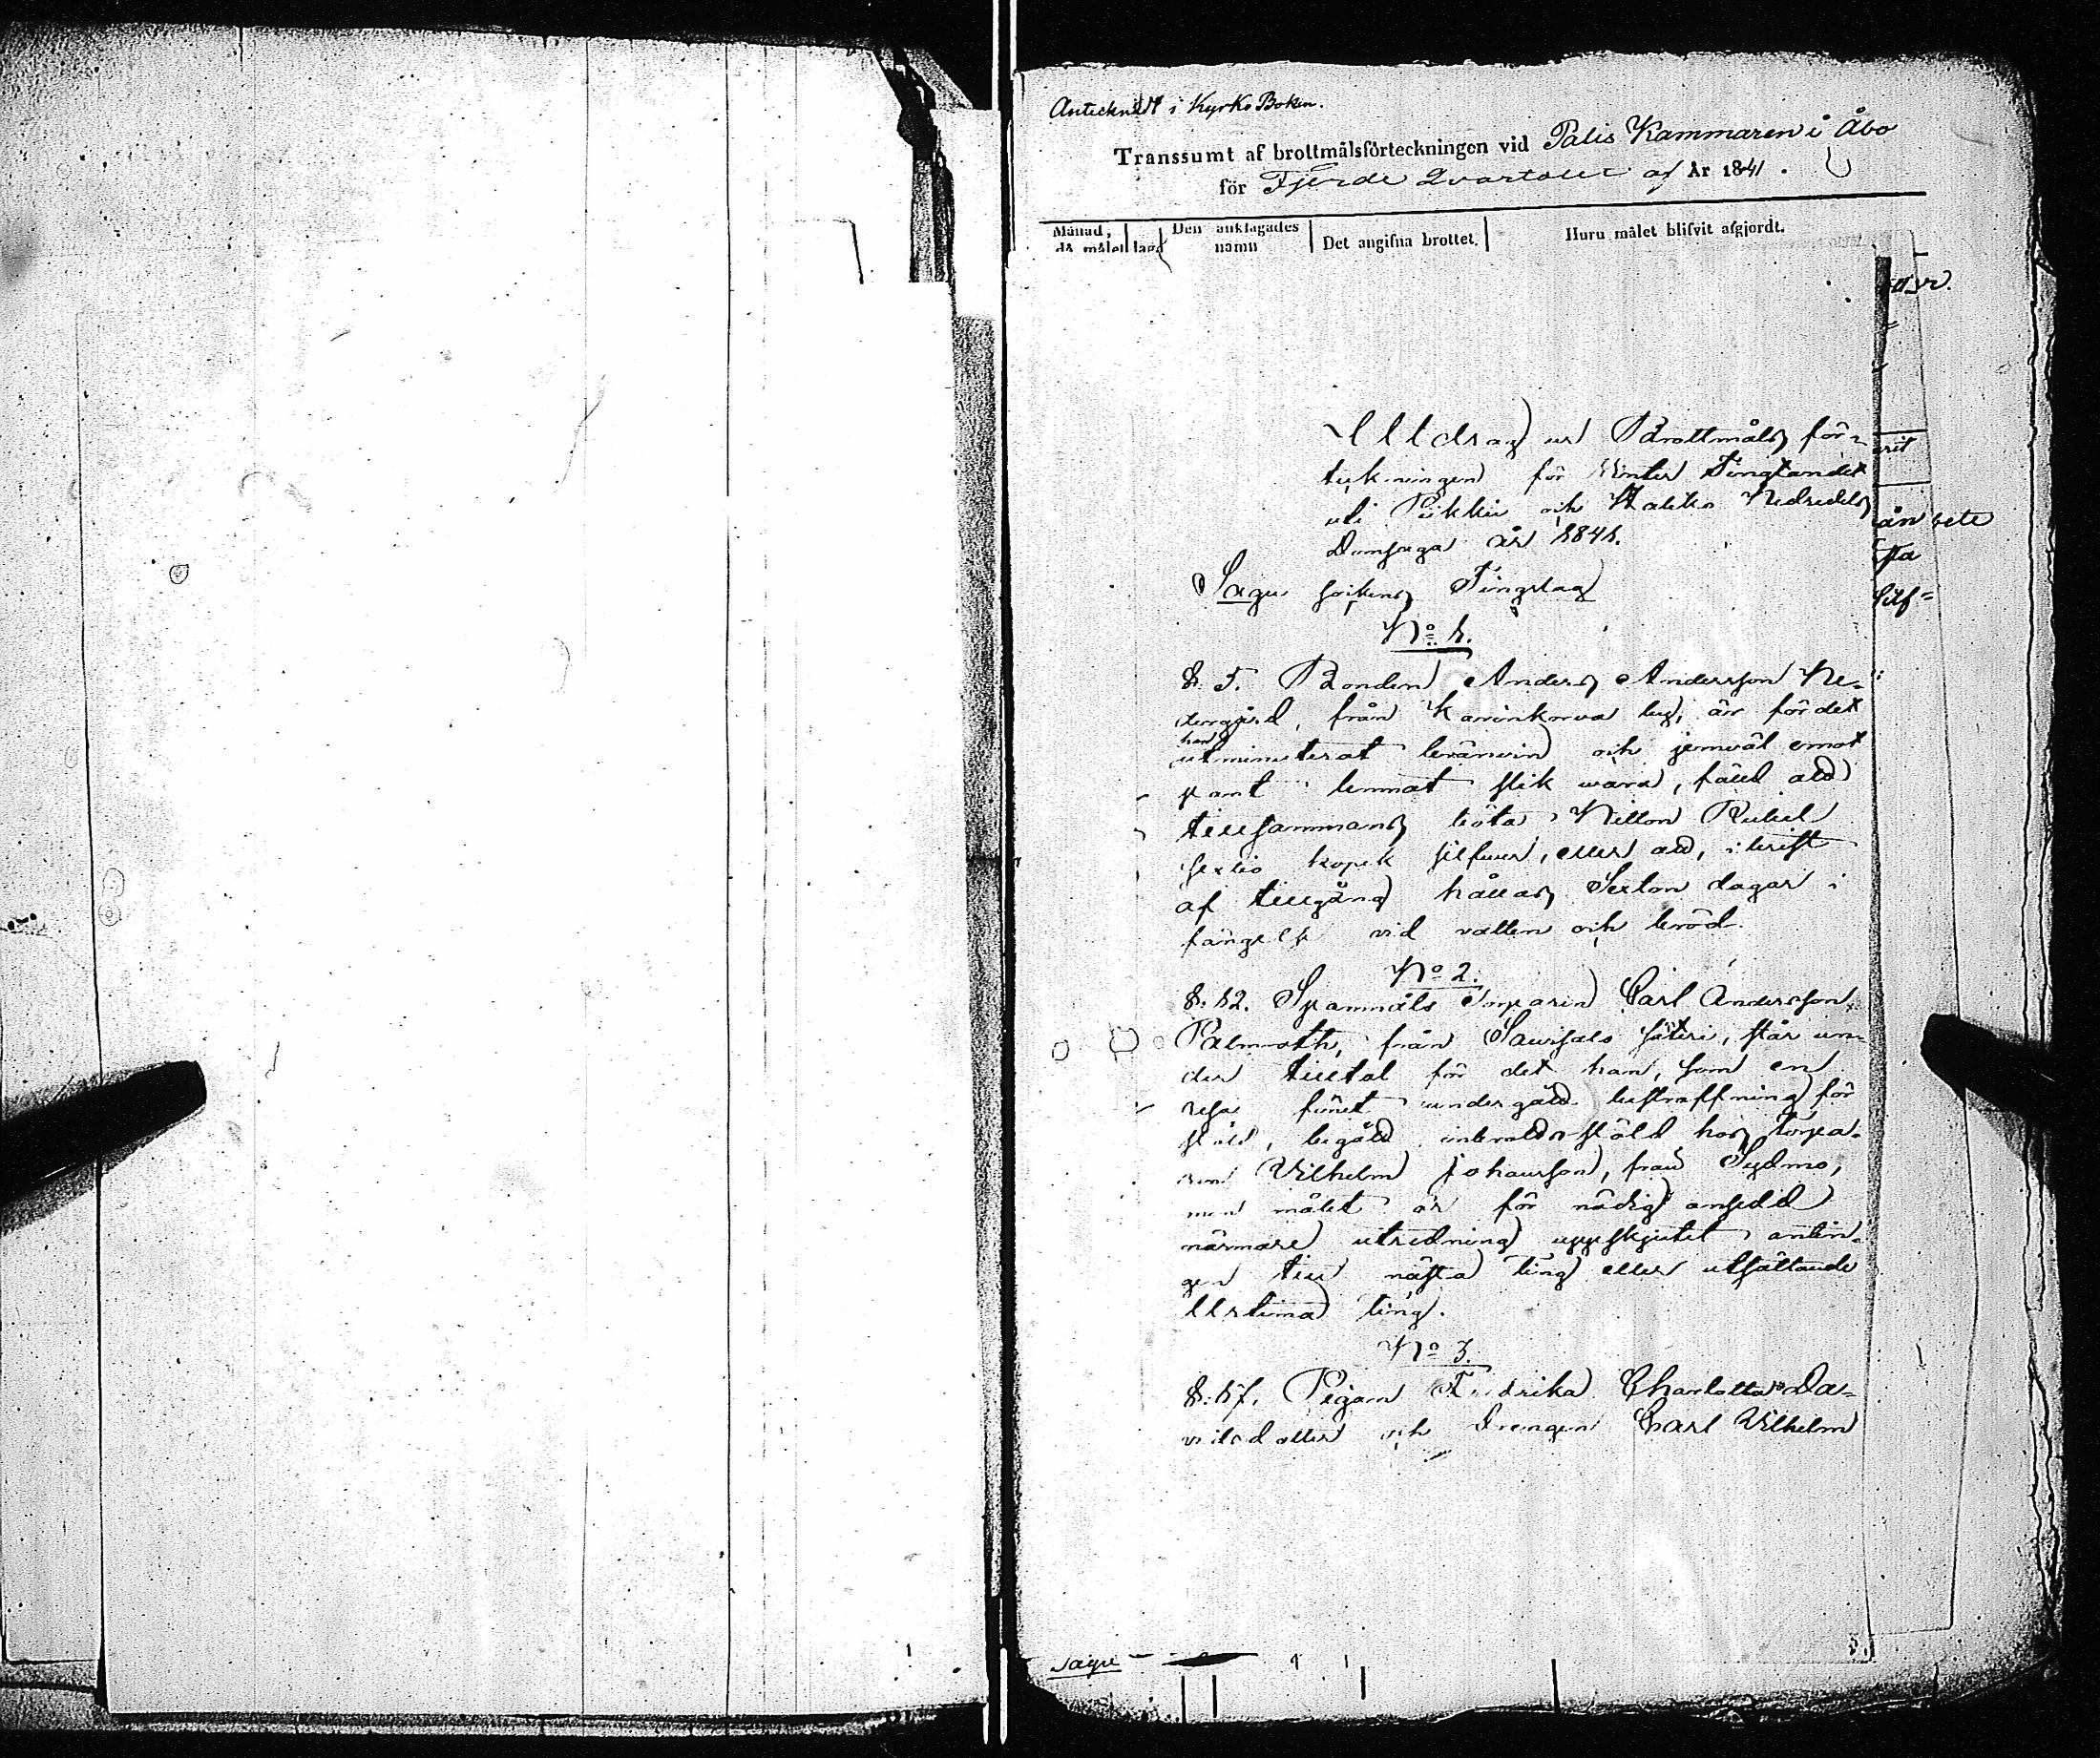 Antecknadt i Kyrko Boken.
Transsumt af brottmålsförteckningen vid Polis Kammaren i Åbo
för Fjerde Qvartalet af År 1841.
Månad, då målet Den anklagades namn Det angifna brottet. Huru målet blifvit afgjordt.
Utdrag ur Brottmåls för-
teckningen för Winter Tingtandet
uti Pikkis och Halikko Nedredels
Domsaga år 1841.
Sagu sockens Tingslag
No 1.
§ 5. Bonden Anders Andersson Ne-
dergård, från Karinkorva by, är för det
han
utminuterat bränvin och jemväl emot
pant lemnat slik wara, fäld att
tillsammans böta Nitton Rubel
sextio kopek silfwer, eller att, i brist
af tillgång hållas Sexton dagar i
fängelse vid vatten och bröd.
No 2.
§. 12. Spannmåls Torparen Carl Andersson
Palmroth, från Sauvsalo säteri, står un-
der tilltal för det han, som en
resa förut undergått bestraffning för
stöld, begått inbrottsstöld hos torpa-
ren Vilhelm Johansson, från Sydmo,
men målet är för nödig ansedd
närmare utredning uppskjutet antin-
gen till nästa ting eller utsättande
Urtima ting.
No 3.
§. 17. Pigan Fredrika Charlotta Da-
vidsdotter och Drengen Carl Vilhelm
Sagu